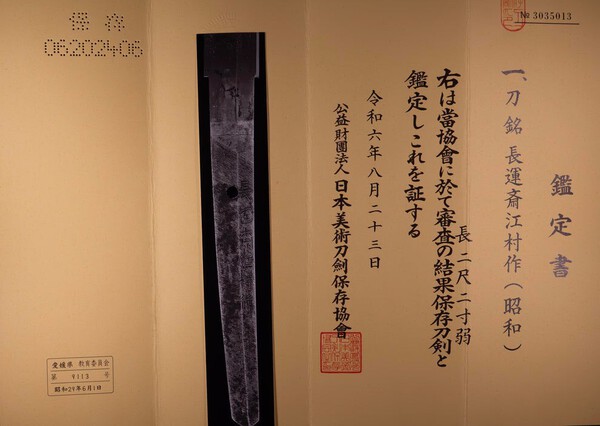 № 3035013
鑑定書
一、刀 銘 長運斎江村作(昭和)
長 二尺二寸弱
右は當協會に於て審査の結果保存刀剣と
鑑定しこれを証する
令和六年八月二十三日
公益財團法人 日本美術刀劍保存協會
保存
06202406
愛媛県 教育委員会
第 9113 号
昭和29年6月1日